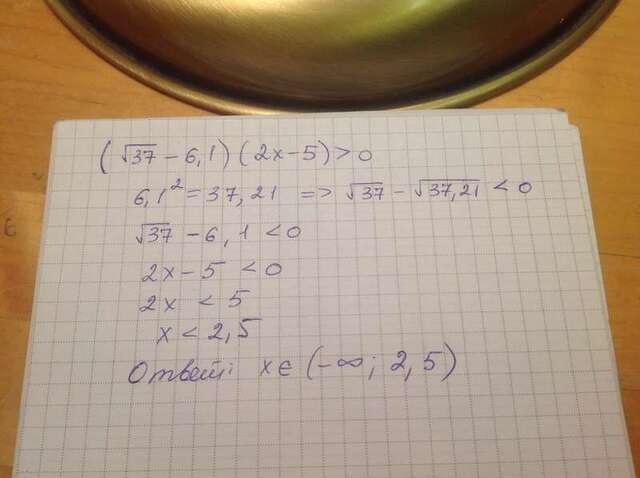 (√37 - 6,1)(2x-5)>0
6,1² = 37,21 => √37 - √37,21 < 0
√37 - 6,1 < 0
2x - 5 < 0
2x < 5
x < 2,5
Ответ: x∈(-∞; 2,5)